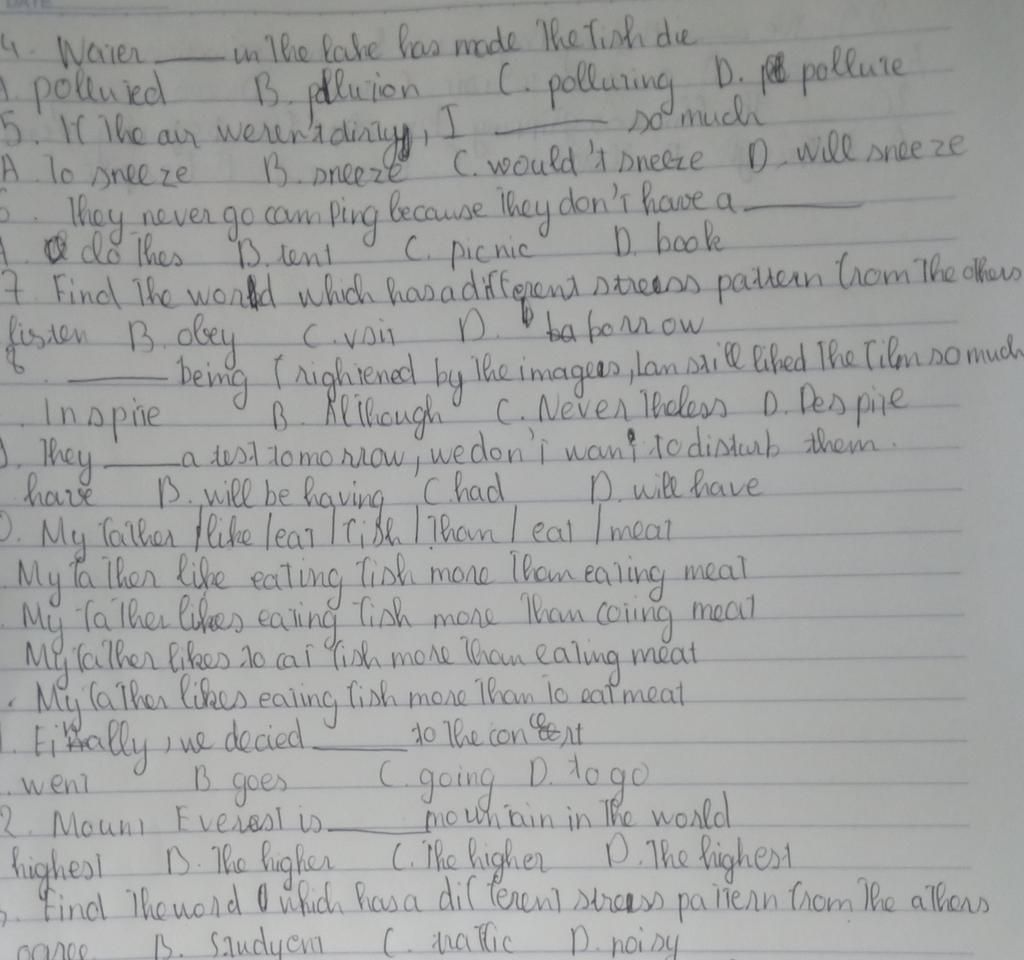 4. Water ___ in the lake has made the fish die
A. polluted B. pollution C. polluting D. pollute
5. If the air weren't dirty, I ___ so much
A to sneeze B. sneeze C. would't sneeze D. will sneeze
6. They never go camping because they don't have a ___
A. clothes B. tent C. picnic D. book
7. Find the world which has a different stress pattern from the others
listen B. obey C. visit D. borrow
8. ___ being frightened by the images, Ian still liked the film so much
. In spite B. Although C. Never theless D. Despite
9. They ___ a test tomorrow, we don't want to disturb them.
have B. will be having C. had D. will have
0. My father / like / eat / fish / than / eat / meat
My father like eating fish more than eating meat
My father likes eating fish more than eating meat
My father likes to eat fish more than eating meat
. My father likes eating fish more than to eat meat
1. Finally, we decied ___ to the concert
. went B goes C. going D. to go
2. Mount Everest is ___ mountain in the world
highest B. the higher C. the higher D. the highest
3. Find the word which has a different stress pattern from the athers
B. studyent C. traffic D. noisy